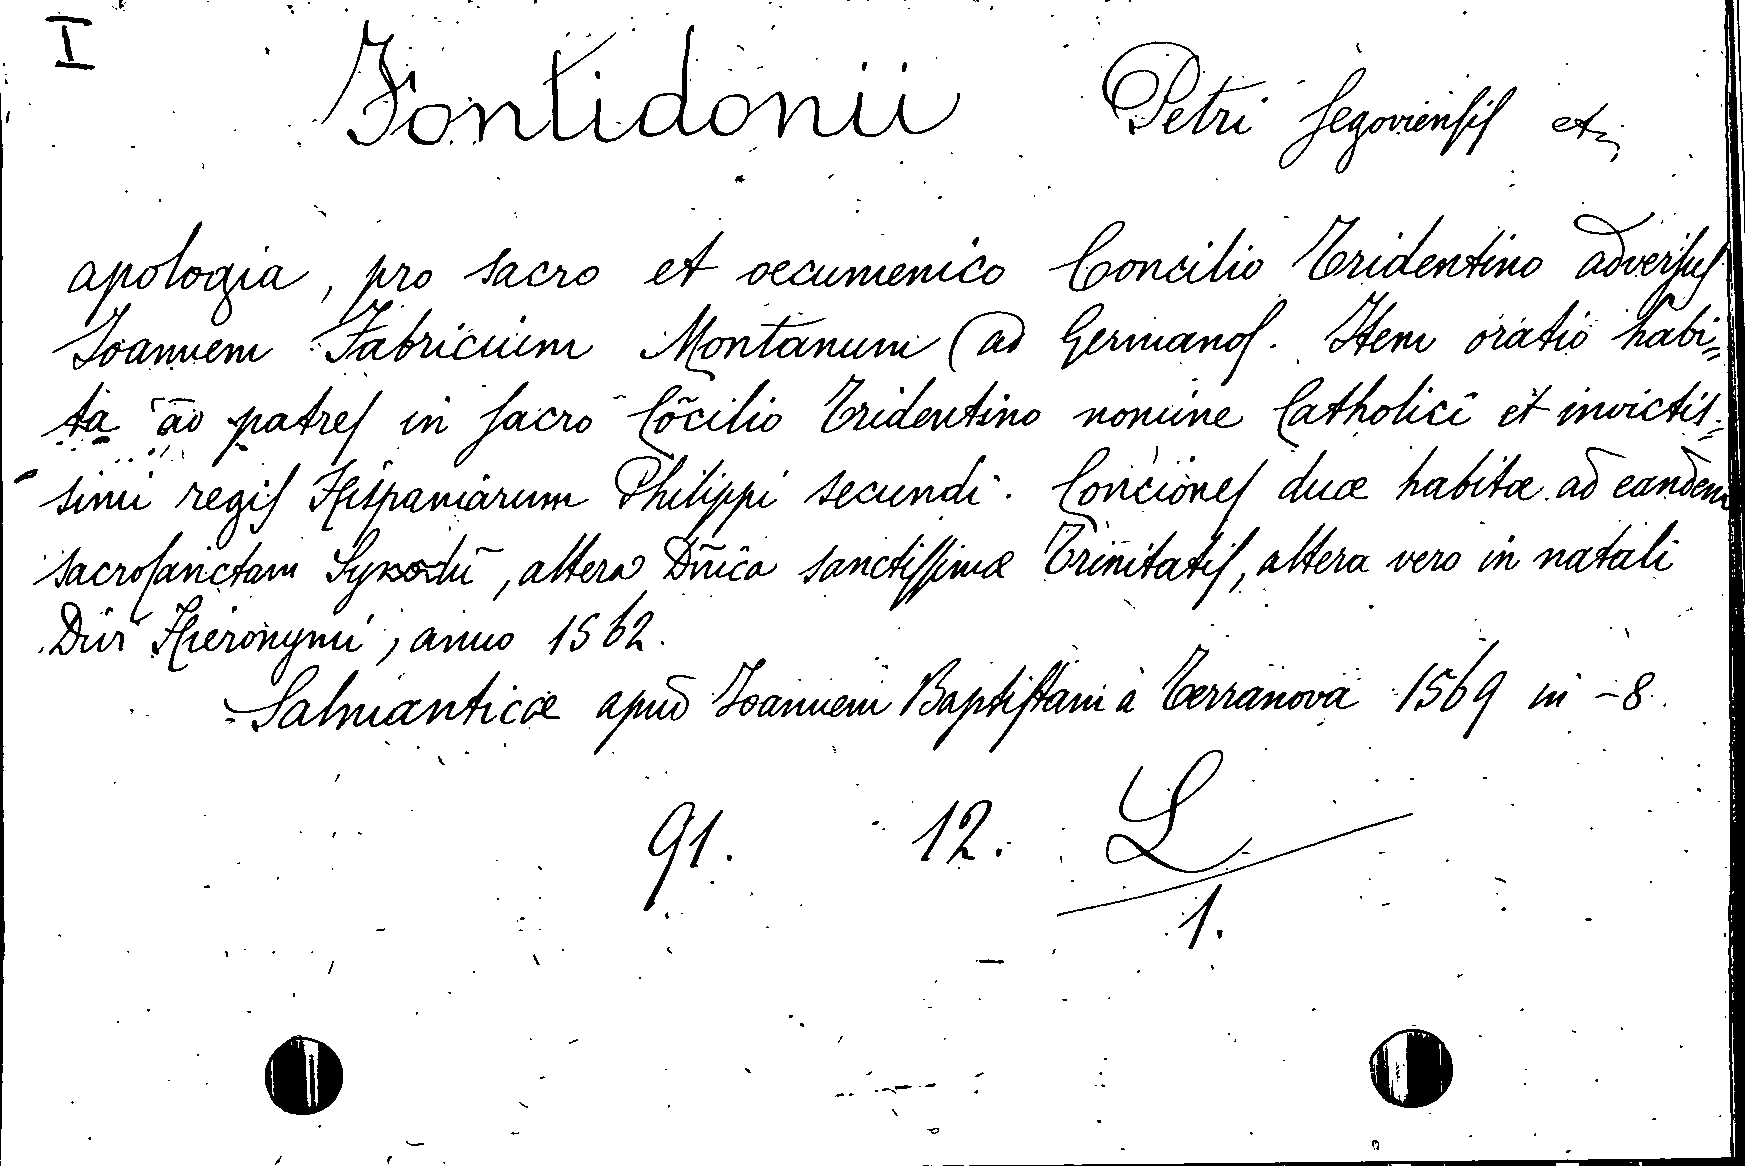 I
Fontidonii Petri Segoviensis etc
apologia, pro sacro et oecumenico Concilio Tridentino adversus
Joannem Fabricium Montanum ad Germanos. Item oratio habi=
ta ad patres in sacro Cõcilio Tridentino nomine Catholici et invictis=
simi regis Hispaniarum Philippi secundi. Conciones duæ habitæ ad eandem
sacrosanctam Synodũ, altera Dñica sanctissimæ Trinitatis, altera vero in natali
Divi Hieronymi, anno 1562.
Salmanticæ apud Joannem Baptistam à Terranova 1569 in -8.
91. 12. L
1.